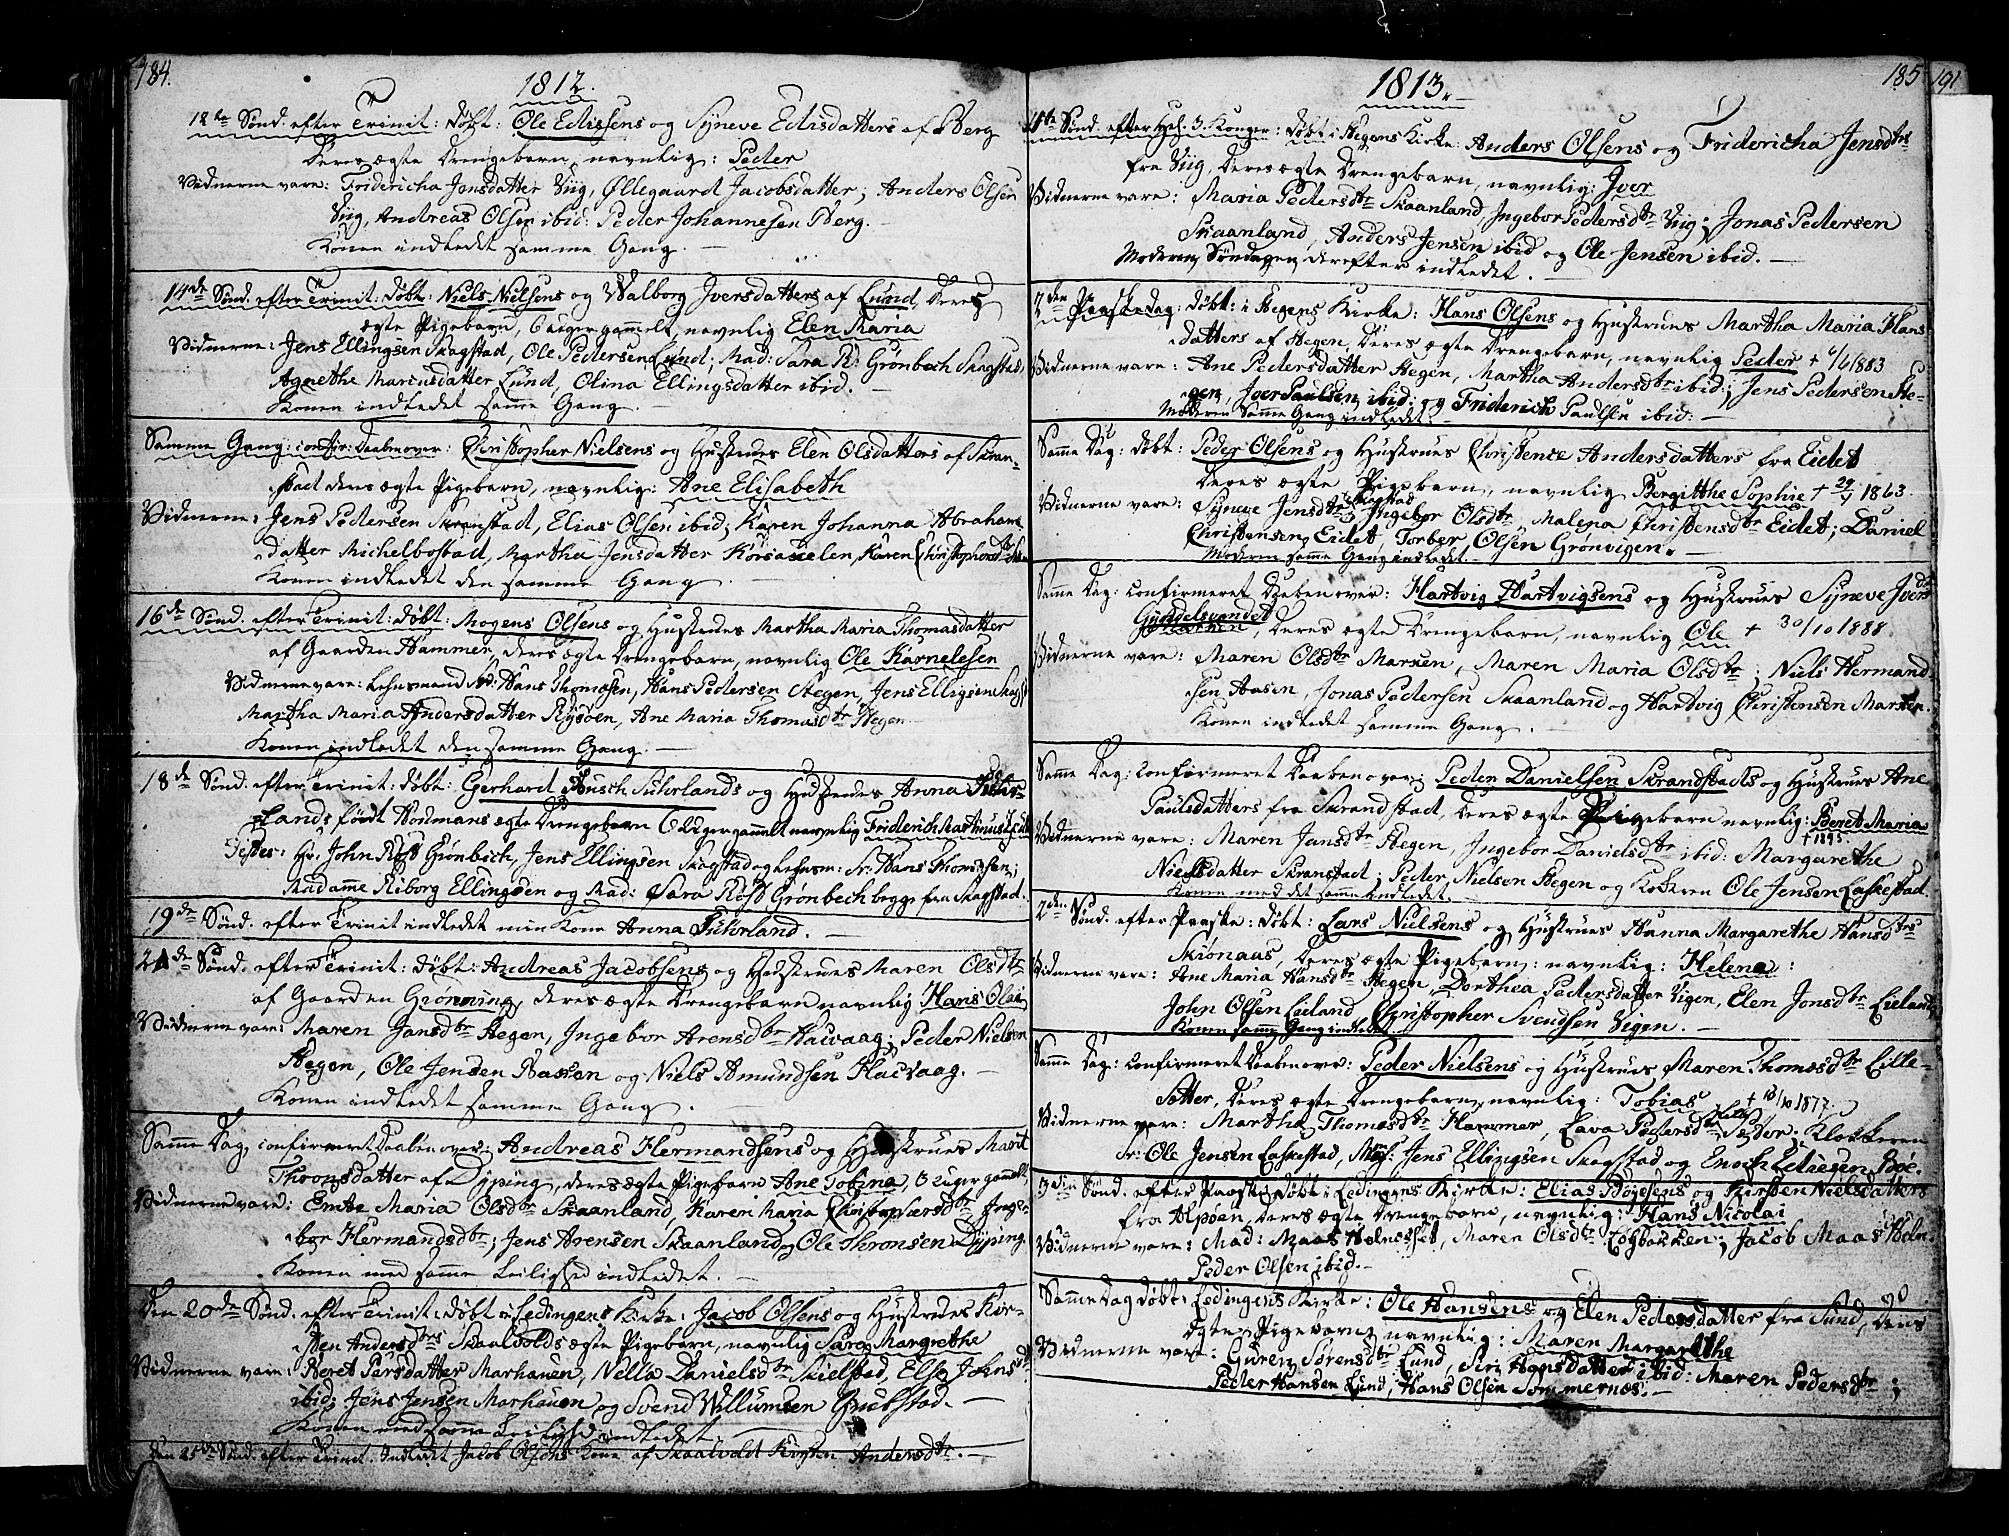 184.
1812.
18de Sönd. efter Trinit: döbt: Ole Edissens og Syneve Edisdatters af Berg
Deres ægte Drengebarn, navnlig: Peder
Vidnerne vare: Fridericha Jensdatter Viig, Øllegaard Jacobsdatter; Anders Olsen
Viig, Andreas Olsen ibid: Peder Johannesen Berg.
Konen indledet samme Gang. —
14de Sönd. efter Trinit: döbt: Niels Nielsens og Walborg Iversdatters af Lund, Deres
ægte Pigebarn, 6 uger gammelt, navnlig Elen Maria
Vidnerne: Jens Ellingsen Skagstad, Ole Pedersen Lund; Mad: Sara R: Grønbech Skagstad
Agnethe Mariusdatter Lund, Olina Ellingsdatter ibid. —
Konen indledet samme Gang. —
Samme Gang: confir: Daaben over: Christopher Nielsens og Hustrues Elen Olsdatters af Skran-
stad deres ægte Pigebarn, navnlig: Ane Elisabeth
Vidnerne: Jens Pedersen Skranstad, Elias Olsen ibid; Karen Johanna Abrahams
datter Michelbostad, Martha Jensdatter Korsauelen, Karen Christophersd:
Konen indledet den samme Gang. —
16de Sönd. efter Trinit: döbt: Mogens Olsens og Hustrues Martha Maria Thomasdatter
af Gaarden Hammer, deres ægte Drengebarn, navnlig Ole Kornelesen
Vidnerne vare: Lehnsmand Hans Thomasen, Hans Pedersen Hegen, Jens Elligsen Skagst
Martha Maria Andersdatter Rysøen, Ane Maria Thomasdtr Hegen.
Konen indledet den samme Gang. —
18de Sönd. efter Trinit: döbt: Gerhard Busch Suhrlands og Hustrues Anna Suhr-
lands født Houmans ægte Drengebarn 6 Uger gammelt navnlig Friderich Rasmus
Testes: Hr. John Röst Grønbech, Jens Ellingsen Skagstad og Lehnsm: Sr: Hans Thomasen;
Madamme Riborg Ellingsen og Mad: Sara Röst Grønbech begge fra Skagstad.
19de Sönd. efter Trinit indledet min Kone Anna Suhrland. —
21de Sönd. efter Trinit: döbt: Andreas Jacobsens og Hustrues Maren Olsdtr
af Gaarden Grönning, deres ægte Drengebarn navnlig Hans Olai
Vidnerne vare: Maren Jansdtr Hegen, Ingebor Arensdtr Haevaag; Peder Nielsen
Hegen, Ole Jensen Aasken og Niels Amundsen Haevaag. —
Konen indledet samme Gang. —
Samme Dag, confirmeret Daaben over: Andreas Hermandsens og Hustrues Marit
Thronsdatter af Dyping, deres ægte Pigebarn Ane Tobina, 8 uger gammel,
Vidnerne vare: Emte Maria Olsdtr Skaanland, Karen Maria Christophersdtr Inge-
bor Hermandsdtr; Jens Arensen Skaanland og Ole Thronsen Dyping
Konen med samme Leilighed indledet. —
Den 20de Sönd. efter Trinit: döbt i Lødingens Kirke: Jacob Olsens og Hustrues Kir-
sten Andersdtrs Skaalvolds ægte Pigebarn, navnlig Sara Margrethe
Vidnerne vare: Beret Persdatter Marhauen, Nella Danielsdtr Skielstad, Else Johnsdtr
ibid; Jens Jensen Marhauen og Svend Willumsen Grubstad. —
Konen med samme Leilighed indledet. —
Den 25de Sönd. efter Trinit. Indledet Jacob Olsens Kone af Skaalvold Kirsten Andersdtr. —
1813.
185
191
4de Sönd. efter Hel. 3. Konger: döbt i Hegens Kirke: Anders Olsens og Fridericha Jensdtrs
fra Viig, Deres ægte Drengebarn, navnlig: Iver
Vidnerne vare: Maria Pedersdtr Skaanland, Ingebor Pedersdtr Viig; Jonas Pedersen
Skaanland, Anders Jensen ibid og Ole Jensen ibid. —
Moderen Söndagen derefter indledet. —
2den Paaskedag: döbt: i Hegens Kirke: Hans Olsens og Hustrues Martha Maria Hans
datters af Hegen, Deres ægte Drengebarn, navnlig Peder + 6/6 1883
Vidnerne vare: Ane Pedersdatter Hegen, Martha Andersdtr ibid; Jens Pedersen He-
gen, Iver Paulsen ibid: og Friderich Paulsen ibid: —
Moderen Samme Gang indledet. —
Samme Dag: döbt: Peder Olsens og Hustrues Christence Andersdatters fra Eidet
Deres ægte Pigebarn, navnlig Bergitthe Sophie + 29/5 1863.
Vidnerne vare: Syneve Jensdtr Skagstad Ingebor Olsdtr, Malena Christensdtr Eidet; Daniel
Christensen Eidet, Torber Olsen Grønvigen.
Moderen samme Gang indledet. —
Samme Dag: Confirmeret Daaben over: Hartvig Hartvigsens og Hustrues Syneve Ivers dtr
Gyndelsvandet, Deres ægte Drengebarn, navnlig Ole + 30/10 1888.
Vidnerne vare: Maren Olsdtr Marken, Maren Maria Olsdtr; Niels Hermand-
sen Aasen, Jonas Pedersen Skaanland og Hartvig Christensen Marken.
Konen indledet samme Gang. —
Samme Dag: Confirmeret Daaben over: Peder Danielsen Skrandstads og Hustrues Ane
Paulsdatters fra Skrandstad, Deres ægte Pigebarn navnlig: Beret Maria
+ 1895.
Vidnerne vare: Maren Jansdtr Hegen, Ingebor Danielsdtr ibid: Margarethe
Nielsdatter Skranstad; Peder Nielsen Hegen og Kokken Ole Jensen Laskestad.
Konen med det samme indledet. —
2den Sönd. efter Paaske: döbt: Lars Nielsens og Hustrues Hanna Margarethe Hansdtrs
Skrönaas, Deres ægte Pigebarn: navnlig: Helena:
Vidnerne vare: Ane Maria Hansdtr Hegen, Dorthea Pedersdatter Vigen, Elen Jonsdtr Lieland
John Olsen Lieland Christopher Svendsen Vigen. —
Konen samme Gang indledet. —
Samme Dag: Confirmeret Daaben over: Peder Nielsens og Hustrues Maren Thomasdtr Lille-
Sætter, Deres ægte Drengebarn, navnlig: Tobias + 18/10 1877.
Vidnerne vare: Martha Thomasdtr Hammer, Lava Pedersdtr; Klokkeren
Sr: Ole Jensen Laskestad, Jens Ellingsen Skagstad og Enoch Edissen Böe.
3die Sönd. efter Paaske döbt i Lødingens Kirke: Elias Böyesens og Kirsten Nielsdatters
fra Alpöen, Deres ægte Drengebarn, navnlig: Hans Nicolai
Vidnerne vare: Mad: Maas Holnesset, Maren Olsdtr Løgbakken; Jacob Maas Holn-
Peder Olsen ibid. —
Samme Dag döbt: Lødingens Kirke: Ole Hansens og Elen Pedersdatter fra Sund, Deres
ægte Pigebarn, navnlig: Maren Margarethe
Vidnerne vare: Guren Sørensdtr Lund, Siri Hansdatter ibid: Maren Pedersdtr;
Peder Hansen Lund, Hans Olsen Sommernæs. —